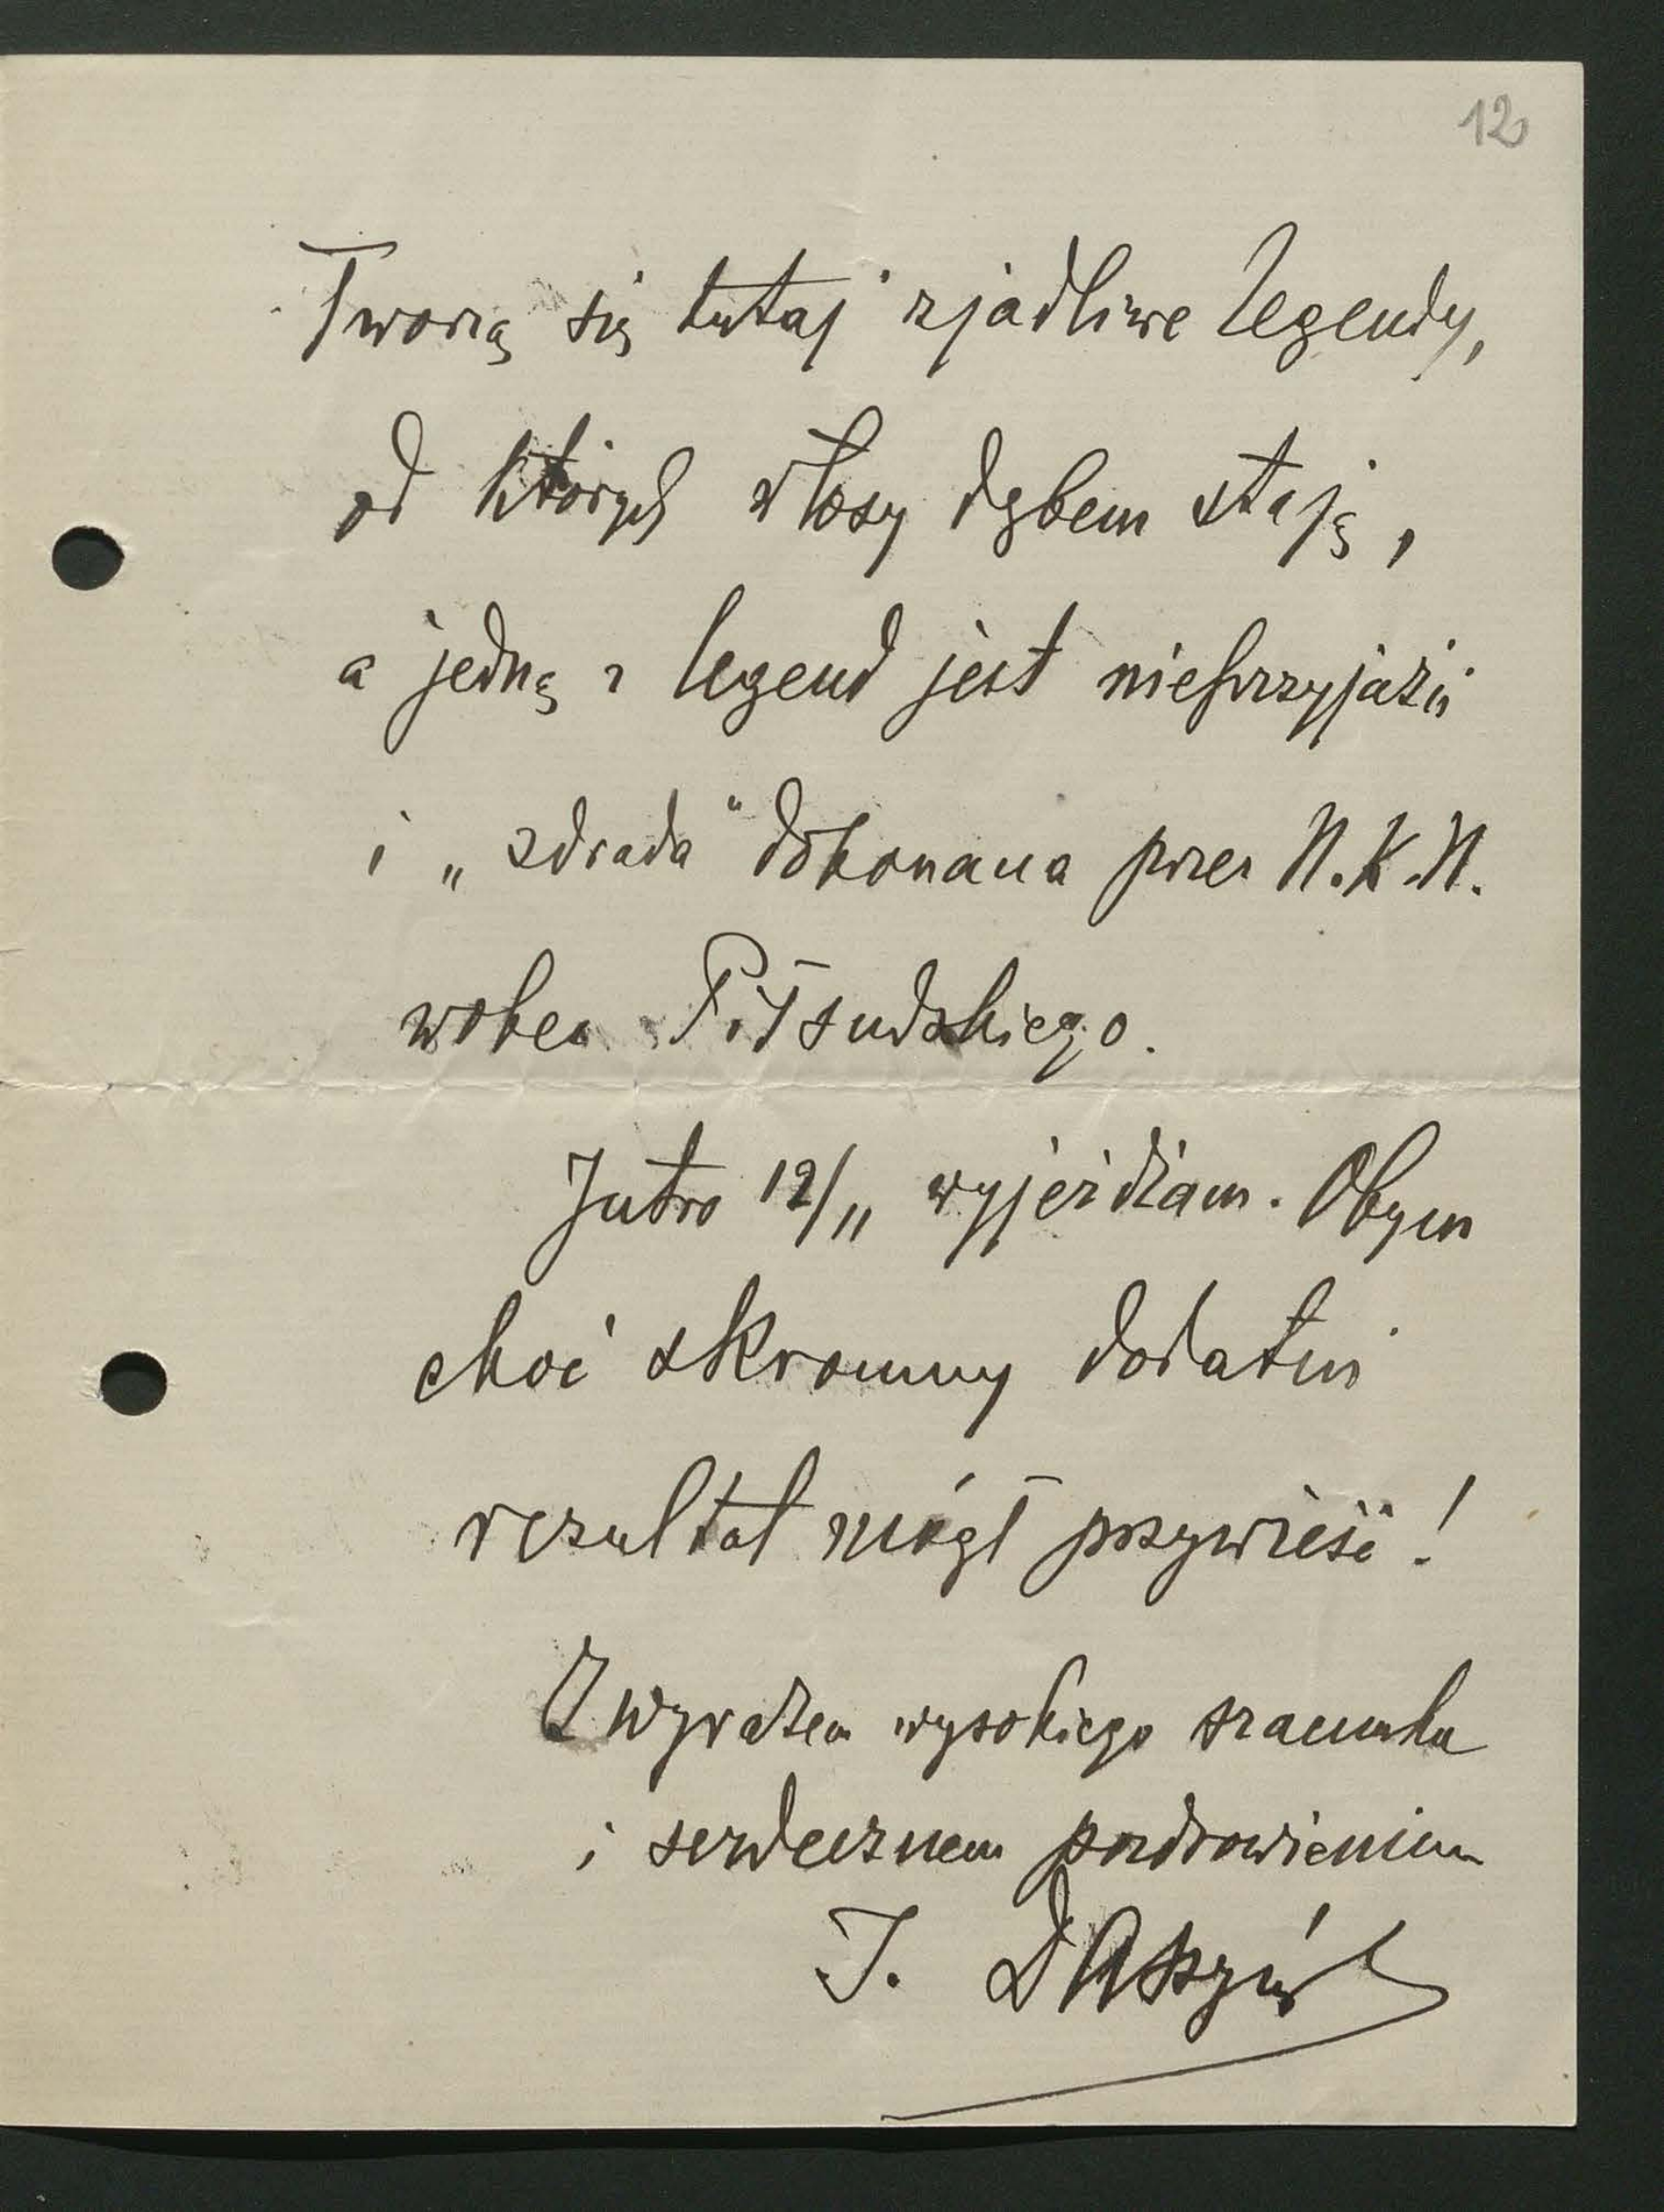 12
Tworzą się tutaj zjadliwe legendy,
od których włosy dębem stają,
a jedną z legend jest nieprzyjaźń
i „zdrada" dokonana przez N.K.N.
wobec Piłsudskiego.
Jutro 12/11 wyjeżdżam. Obym
choć skromny dodatni
rezultat mógł przywieść!
Z wyrazem wysokiego szacunku
i serdecznem pozdrowieniem
I. Daszyński